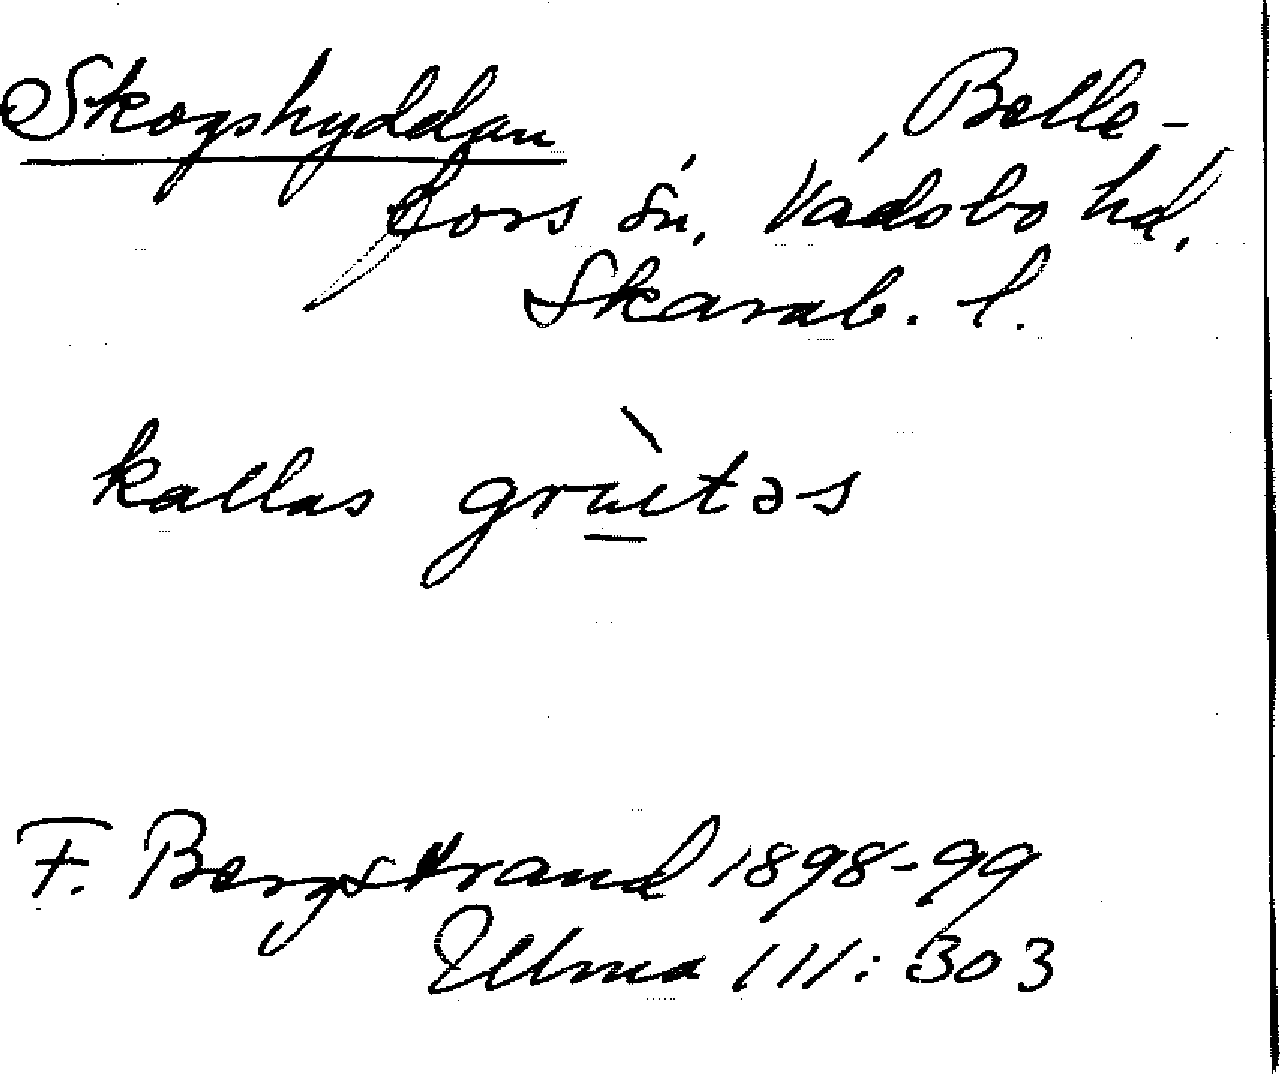 Skogshyddan, Belle-
fors sn, Vadsbo hd,
Skarab. l.
kallas grùetəs
F. Bergstrand 1898-99
Ulma 111: 303